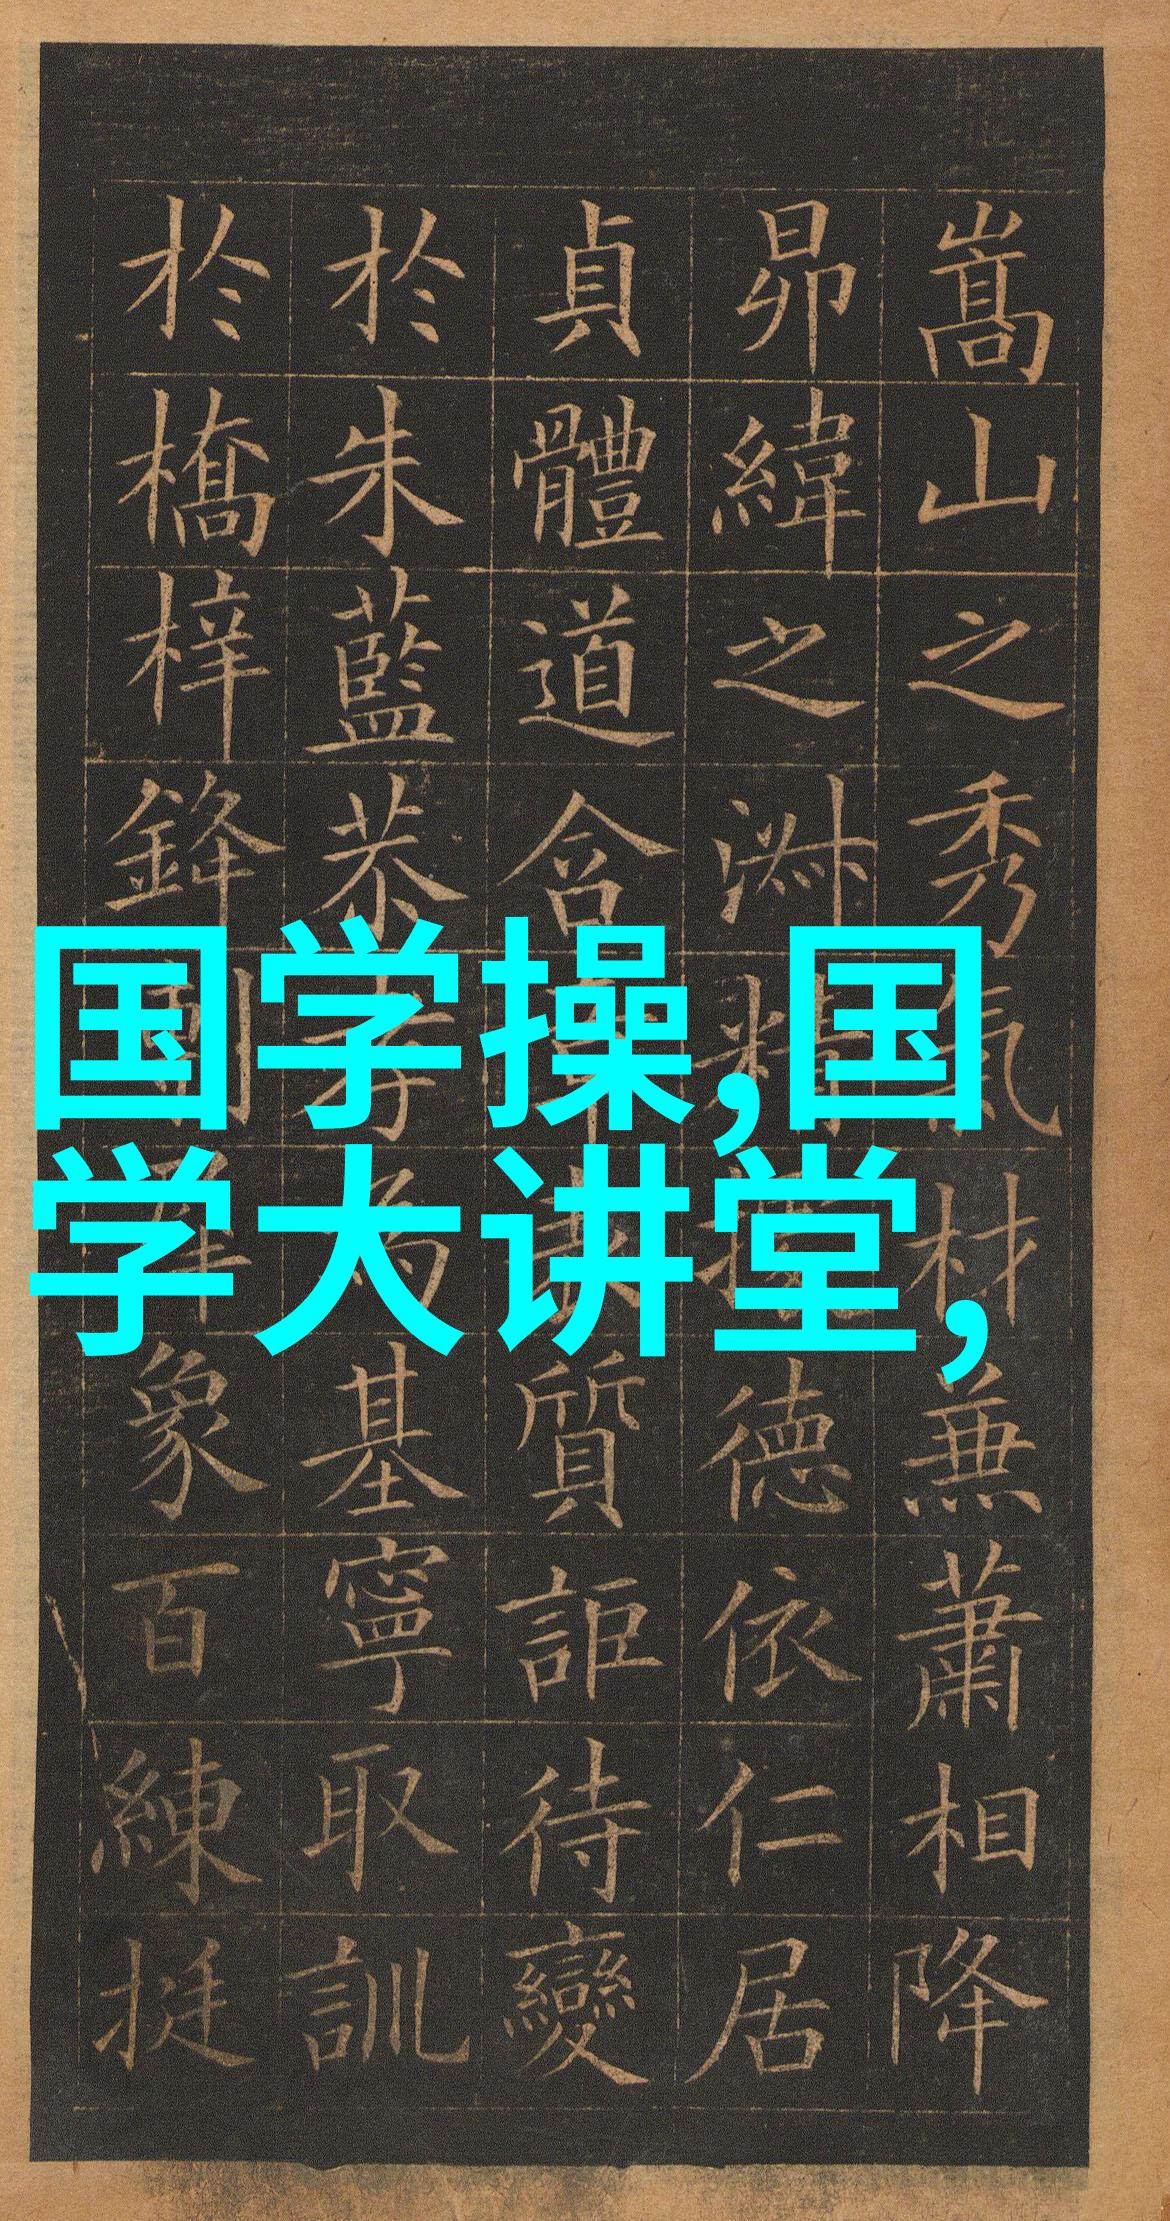 国学操,国
学大讲堂,
嵩山之秀氣材兼蕭相降
昴緯之淑精德依仁居
貞體道含質詎待變
於朱藍恭孝為基寧取訓
於橋梓鋒象百練挺